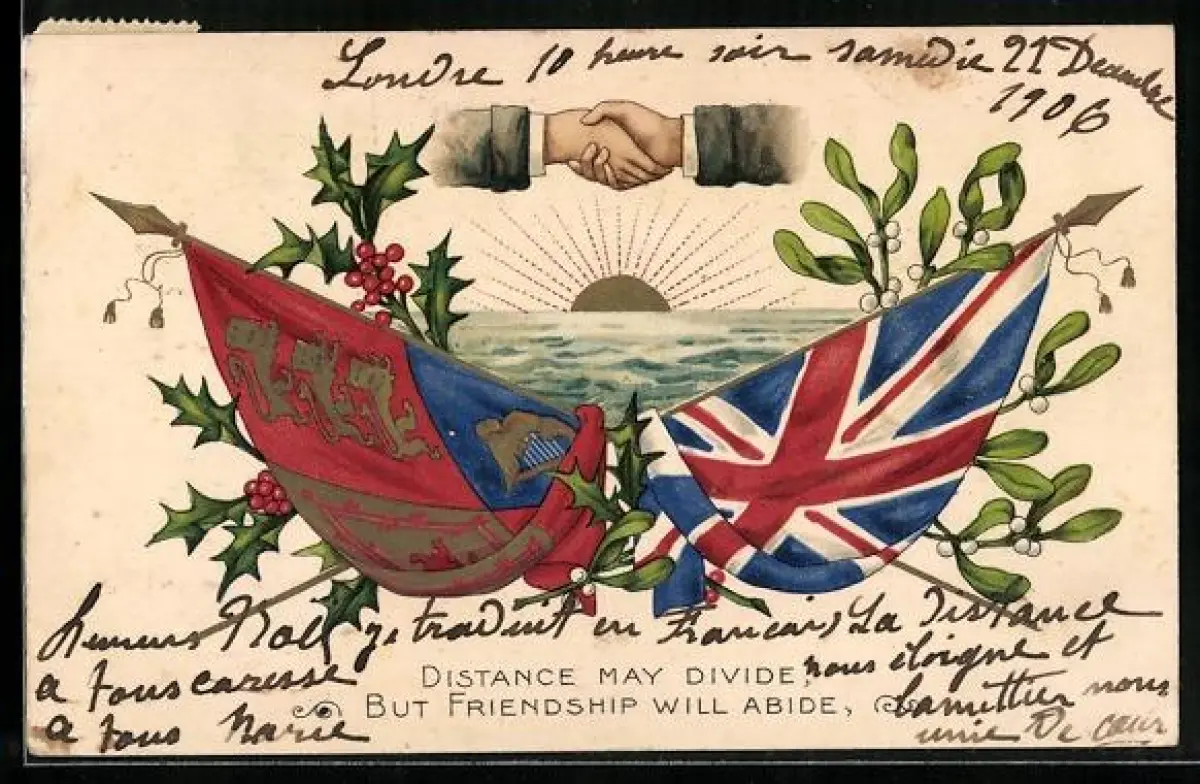 Londre 10 heure soir samedie 21 Decembre
1906
hureurs Noël je traduit en Francais La Distance
nous éloigne et
lamittier nous
unie De cœur
a tous caresse
a tous Marie
DISTANCE MAY DIVIDE,
BUT FRIENDSHIP WILL ABIDE,